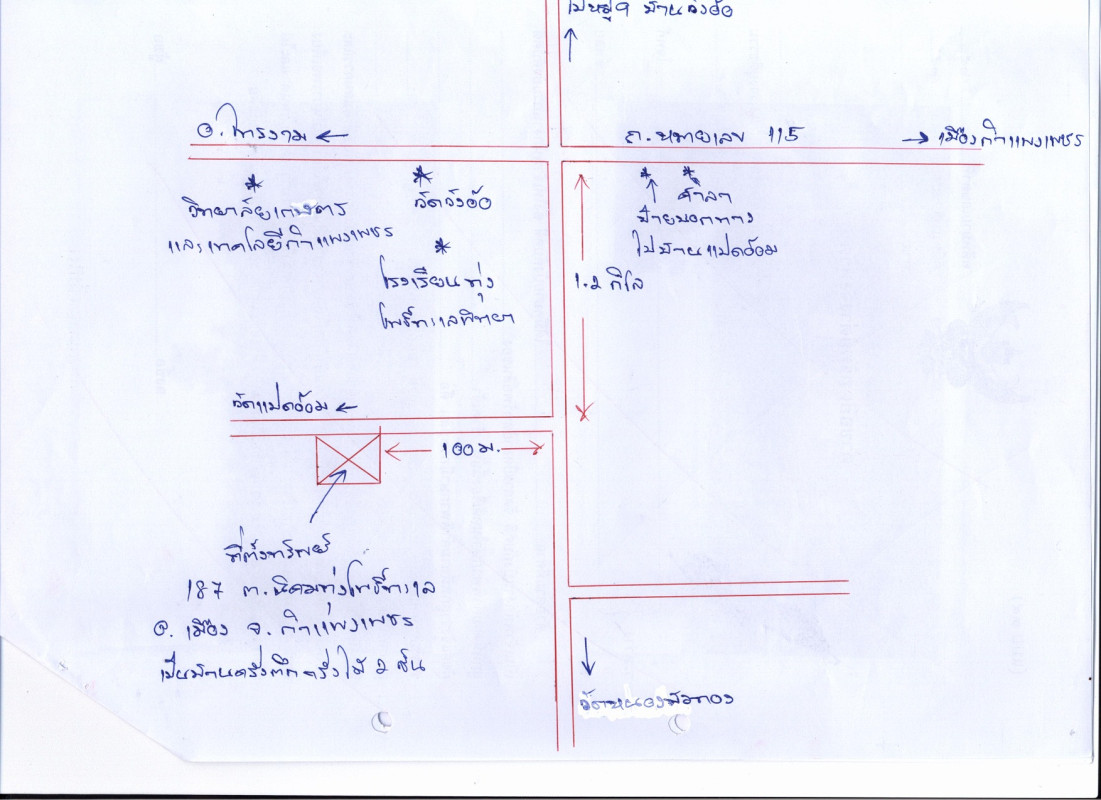 ไปหมู่ 9 บ้านวังอ้อ
อ. ไทรงาม ←
ถ. หมายเลข 115
→ เมืองกำแพงเพชร
วิทยาลัยเกษตร
และเทคโลยีกำแพงเพชร
วัดวังอ้อ
โรงเรียนทุ่ง
โพธิ์ทะเลพิทยา
ศาลา
ป้ายบอกทาง
ไปบ้านแปดอ้อม
1.2 กิโล
วัดแปดอ้อม ←
100 ม.
ที่ตั้งทรัพย์
187 ต. นิคมทุ่งโพธิ์ทะเล
อ. เมือง จ. กำแพงเพชร
เป็นบ้านครึ่งตึกครึ่งไม้ 2 ชั้น